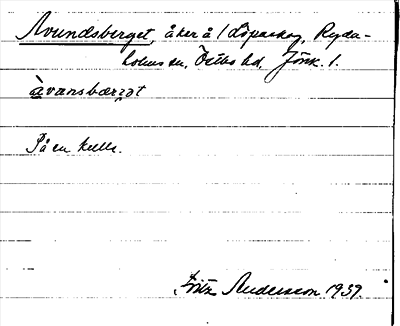 Avundsberget, åker å 1 Löparskog, Ryda-
holms sn, Östbo hd, Jönk. l.
àvansbærjət
På en kulle.
Fritz Andersson 1939.